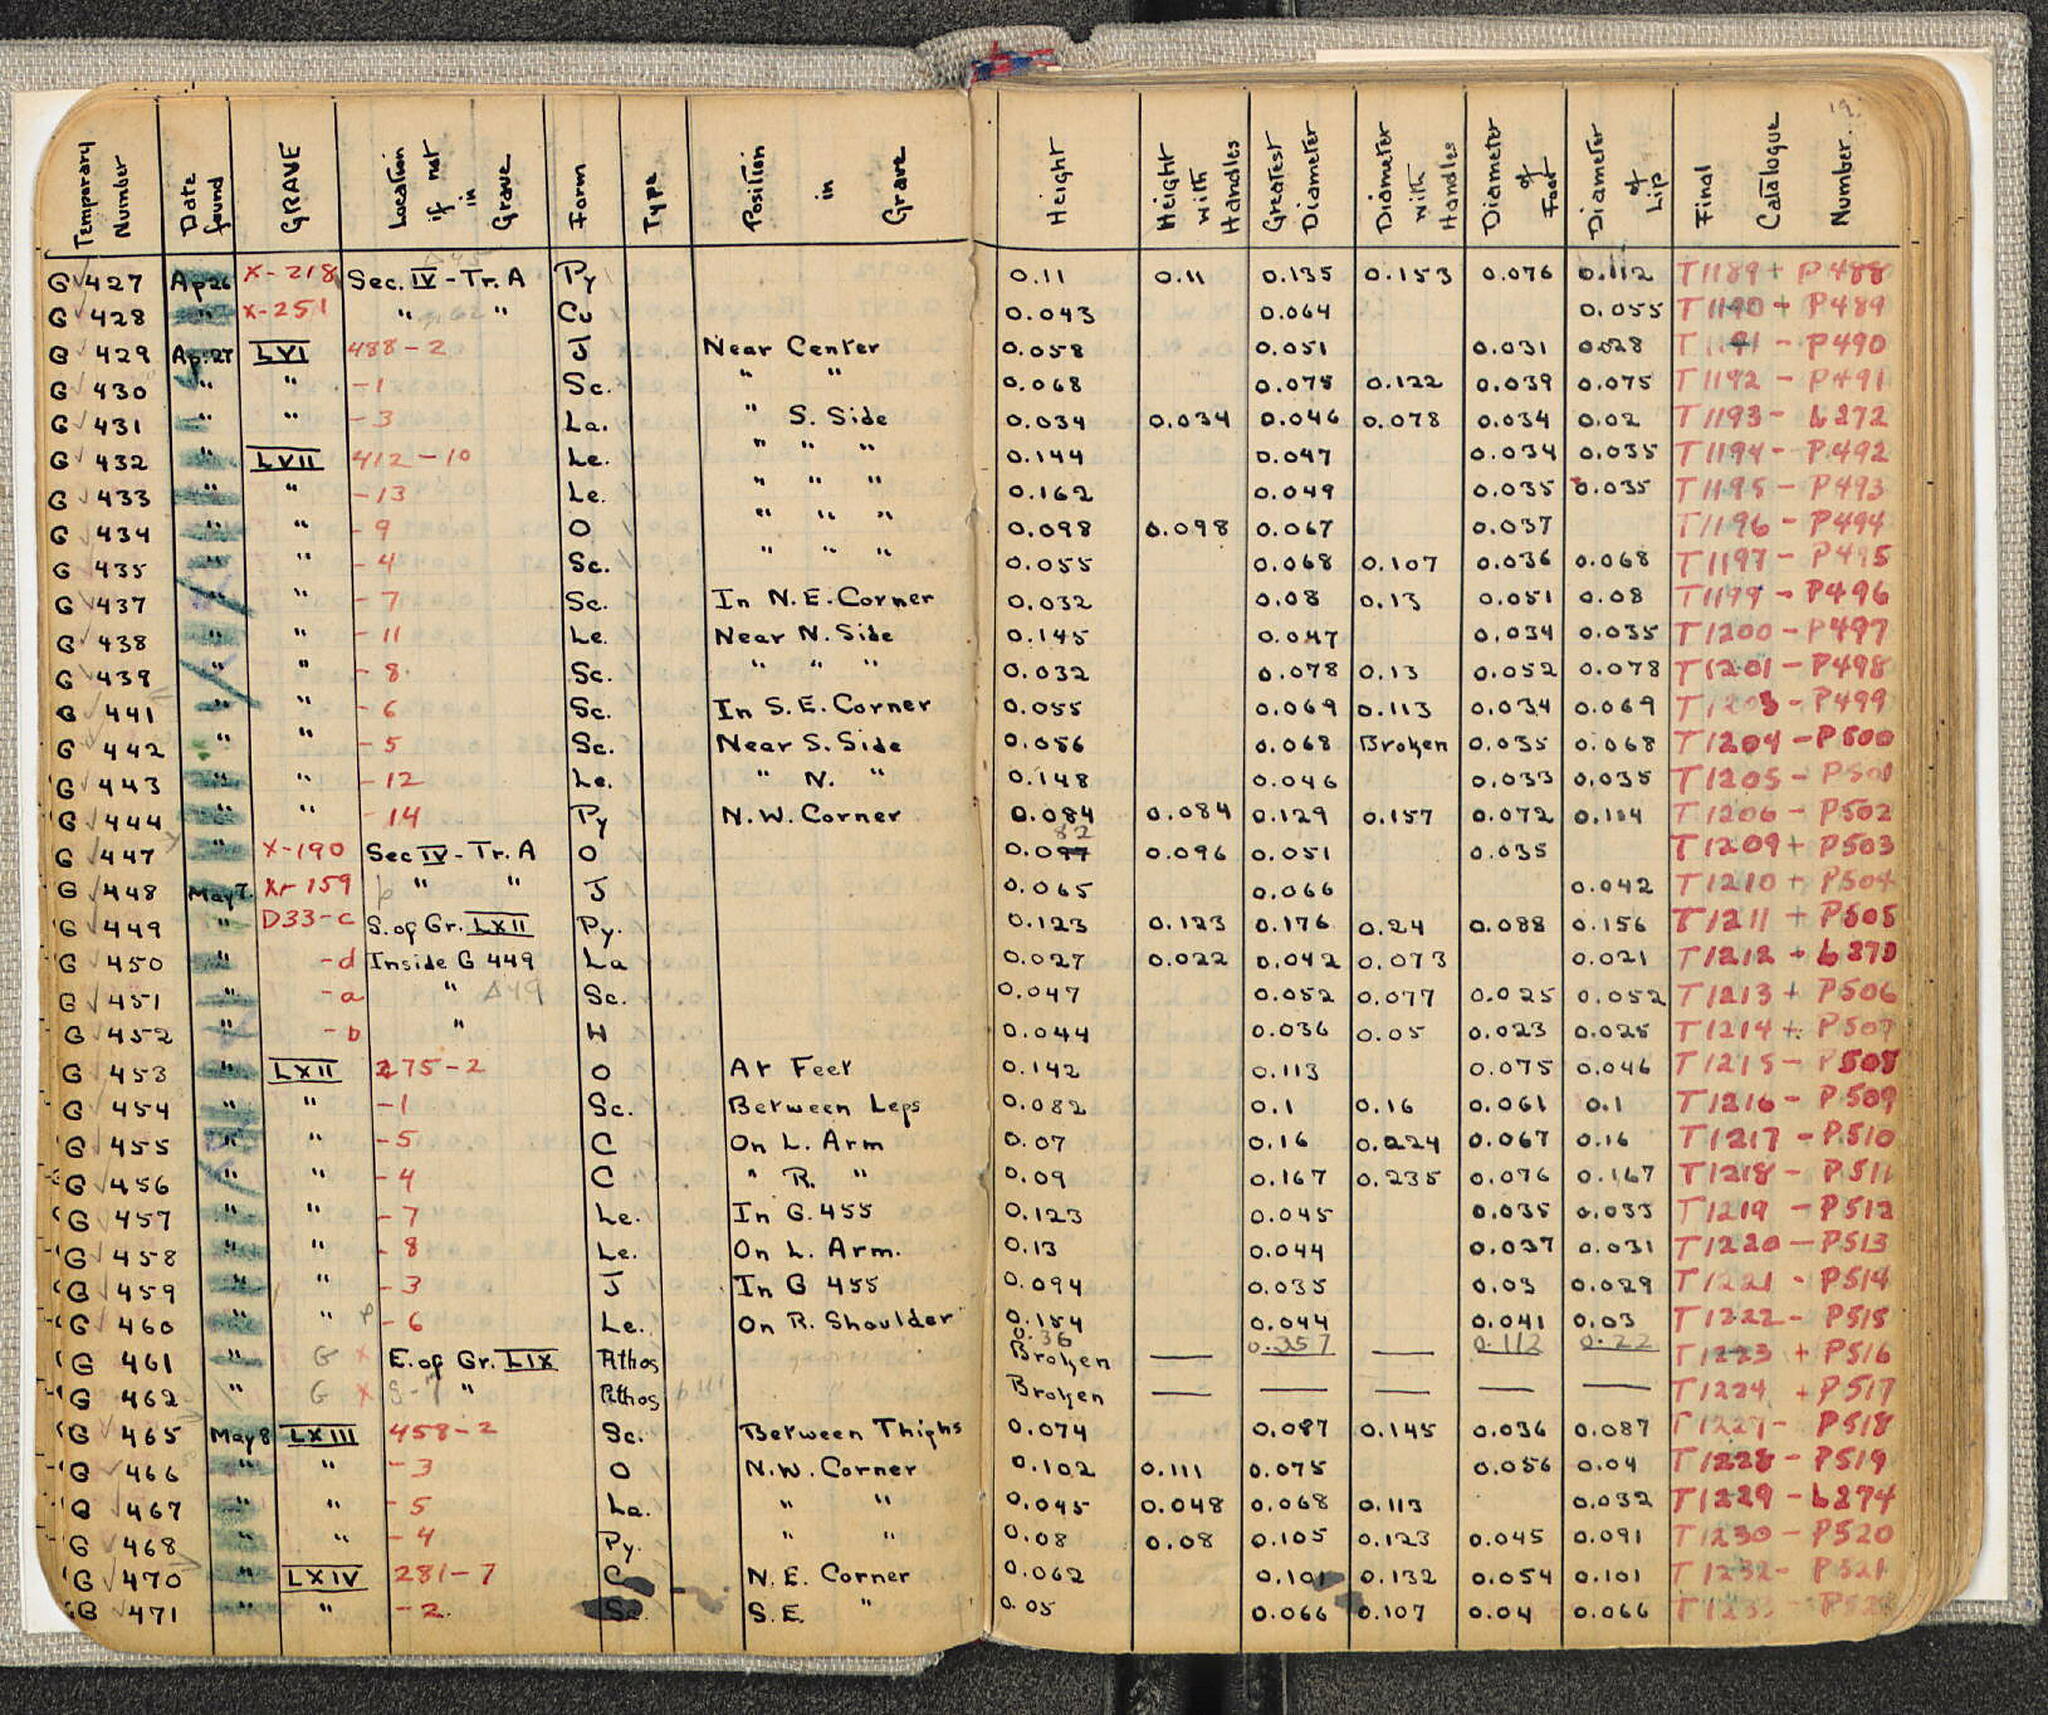 Temporary Number Date found GRAVE Location if not in Grave Form Type Position in Grave Height Height with Handles Greatest Diameter Diameter with Handles Diameter of Foot Diameter of Lip Final Catalogue Number 19
G 427 Ap 26 X-218 Sec. IV - Tr. A Py 0.11 0.11 0.135 0.153 0.076 0.112 T1189 + P488
G 428 " X-251 " " Cu 0.043 0.064 0.055 T1190 + P489
G 429 Ap. 27 LVI 488-2 J Near Center 0.058 0.051 0.031 0.028 T1191 - P490
G 430 " " -1 Sc. " " 0.068 0.075 0.122 0.039 0.075 T1192 - P491
G 431 " " -3 La. " S. Side 0.034 0.034 0.046 0.078 0.034 0.02 T1193 - L272
G 432 " LVII 412-10 Le. " " " 0.144 0.047 0.034 0.035 T1194 - P492
G 433 " " -13 Le. " " " 0.162 0.049 0.035 0.035 T1195 - P493
G 434 " " -9 O " " " 0.098 0.098 0.067 0.037 T1196 - P494
G 435 " " -4 Sc. " " " 0.055 0.068 0.107 0.036 0.068 T1197 - P495
G 437 " " -7 Sc. In N.E. Corner 0.032 0.08 0.13 0.051 0.08 T1199 - P496
G 438 " " -11 Le. Near N. Side 0.145 0.047 0.034 0.035 T1200 - P497
G 439 " " -8 Sc. " " " 0.032 0.078 0.13 0.052 0.078 T1201 - P498
G 441 " " -6 Sc. In S.E. Corner 0.055 0.069 0.113 0.034 0.069 T1203 - P499
G 442 " " -5 Sc. Near S. Side 0.056 0.068 Broken 0.035 0.068 T1204 - P500
G 443 " " -12 Le. " N. " 0.148 0.046 0.033 0.035 T1205 - P501
G 444 " " -14 Py N.W. Corner 0.084 0.084 0.129 0.157 0.072 0.104 T1206 - P502
G 447 " X-190 Sec IV - Tr. A O 0.097 82 0.096 0.051 0.035 T1209 + P503
G 448 May 7 Xr 159 " " J 0.065 0.066 0.042 T1210 + P504
G 449 " D33-c S. of Gr. LXII Py. 0.123 0.123 0.176 0.24 0.088 0.156 T1211 + P505
G 450 " -d Inside G 449 La 0.027 0.022 0.042 0.073 0.021 T1212 + L273
G 451 " -a " Δ49 Sc. 0.047 0.052 0.077 0.025 0.052 T1213 + P506
G 452 " -b " H 0.044 0.036 0.05 0.023 0.025 T1214 + P507
G 453 " LXII 275-2 O At Feet 0.142 0.113 0.075 0.046 T1215 - P508
G 454 " " -1 Sc. Between Legs 0.082 0.1 0.16 0.061 0.1 T1216 - P509
G 455 " " -5 C On L. Arm 0.07 0.16 0.224 0.067 0.16 T1217 - P510
G 456 " " -4 C " R. " 0.09 0.167 0.235 0.076 0.167 T1218 - P511
G 457 " " -7 Le. In G. 455 0.123 0.045 0.035 0.033 T1219 - P512
G 458 " " -8 Le. On L. Arm. 0.13 0.044 0.037 0.031 T1220 - P513
G 459 " " -3 J In G 455 0.094 0.035 0.03 0.029 T1221 - P514
G 460 " " -6 Le. On R. Shoulder 0.154 0.044 0.041 0.03 T1222 - P515
G 461 " G x E. of Gr. LIX Pithos 0.36 Broken — 0.357 — 0.112 0.22 T1223 + P516
G 462 " G x " Pithos Broken — — — — — T1224 + P517
G 465 May 8 LXIII 458-2 Sc. Between Thighs 0.074 0.087 0.145 0.036 0.087 T1227 - P518
G 466 " " -3 O N.W. Corner 0.102 0.111 0.075 0.056 0.04 T1228 - P519
G 467 " " -5 La. " " 0.045 0.048 0.068 0.113 0.032 T1229 - L274
G 468 " " -4 Py. " " 0.08 0.08 0.105 0.123 0.045 0.091 T1230 - P520
G 470 " LXIV 281-7 C N.E. Corner 0.062 0.101 0.132 0.054 0.101 T1232 - P521
G 471 " " -2 Sc. S.E. " 0.05 0.066 0.107 0.04 0.066